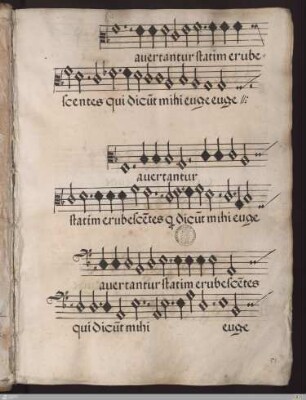 avertantur statim erube
scentes qui dicūt mihi euge euge
avertantur
statim erubescētes q dicūt mihi euge
avertantur statim erubescētes
qui dicūt mihi euge